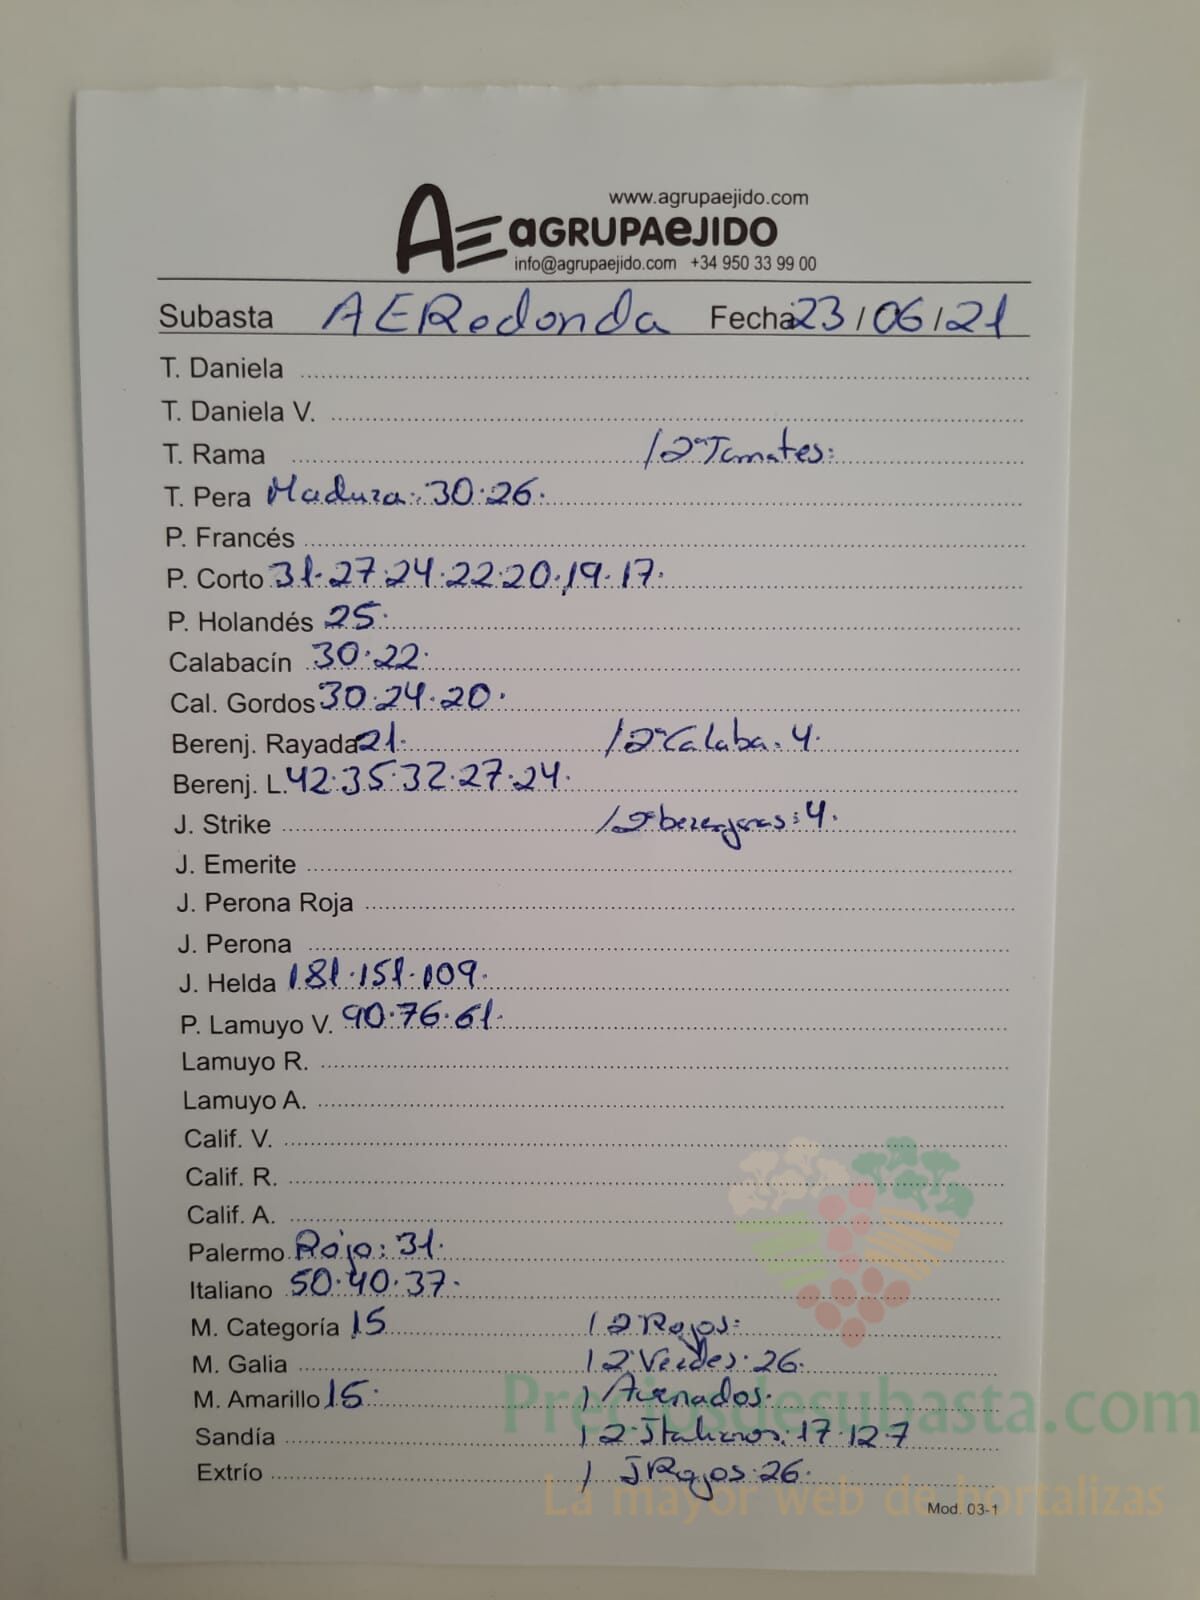 www.agrupaejido.com
AE aGRUPAeJIDO
info@agrupaejido.com +34 950 33 99 00
Subasta AERedonda Fecha 23/06/21
T. Daniela
T. Daniela V.
T. Rama / 2ª Tomates:
T. Pera Madura: 30·26·
P. Francés
P. Corto 31·27·24·22·20·19·17·
P. Holandés 25·
Calabacín 30·22·
Cal. Gordos 30·24·20·
Berenj. Rayada 21· / 2ª Calaba: 4·
Berenj. L. 42·35·32·27·24·
J. Strike / 2ª berenjenas: 4·
J. Emerite
J. Perona Roja
J. Perona
J. Helda 181·151·109·
P. Lamuyo V. 90·76·61·
Lamuyo R.
Lamuyo A.
Calif. V.
Calif. R.
Calif. A.
Palermo Rojo: 31·
Italiano 50·40·37·
M. Categoría 15 / 2ª Rojos:
M. Galia / 2ª Verdes: 26·
M. Amarillo 15· / Asurnados·
Sandía / 2· Italianos: 17·12·7
Extrío / J Rojos: 26·
Mod. 03-1
Preciosdesubasta.com
La mayor web de hortalizas